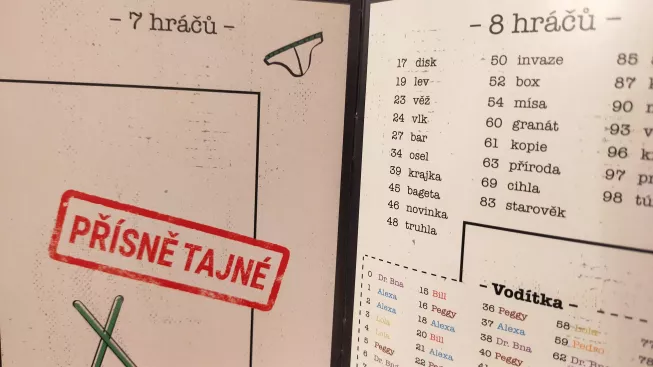 - 7 hráčů -
PŘÍSNĚ TAJNÉ
- 8 hráčů -
17 disk
19 lev
23 věž
24 vlk
27 bar
34 osel
39 krajka
45 bageta
46 novinka
48 truhla
50 invaze
52 box
54 mísa
60 granát
61 kopie
63 příroda
69 cihla
83 starověk
85
87
90
93
96
97
98
- Vodítka -
0 Dr. Bna
1 Alexa
2 Alexa
3
4
5 Peggy
6 Dr. Bna
15 Bill
16 Peggy
18 Alexa
20 Bill
21 Alexa
22
36 Peggy
37 Alexa
38 Dr. Bna
40 Peggy
58
59 Pedro
62 Dr. Bna